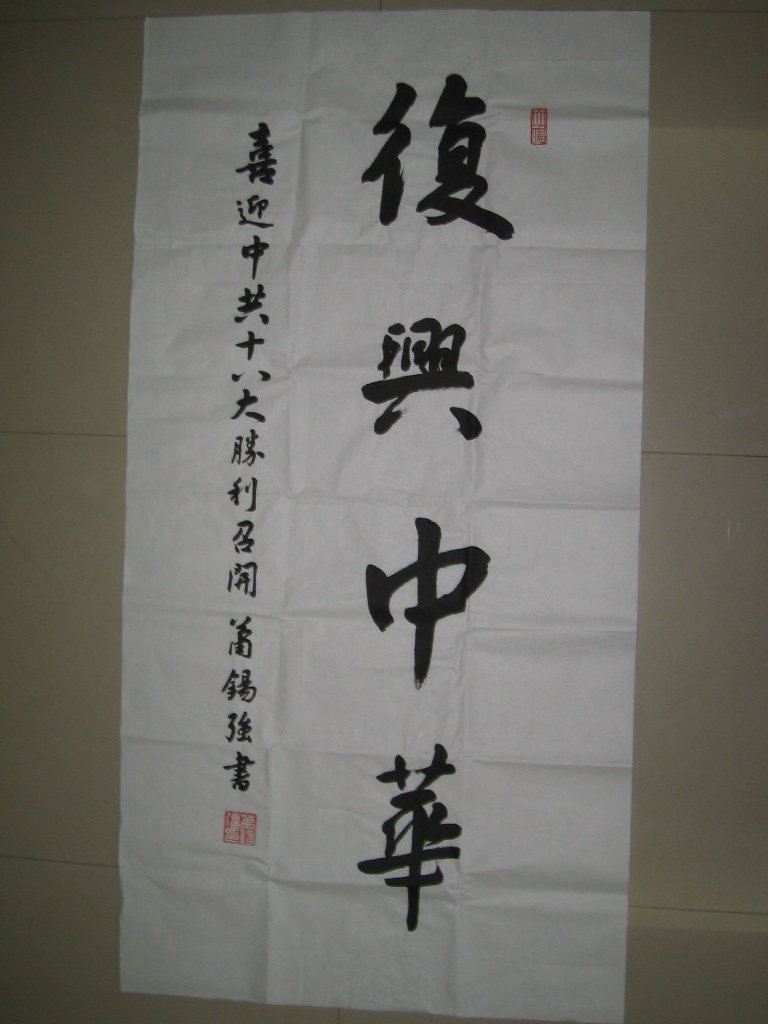 復興中華
喜迎中共十八大勝利召開 萧錫強書